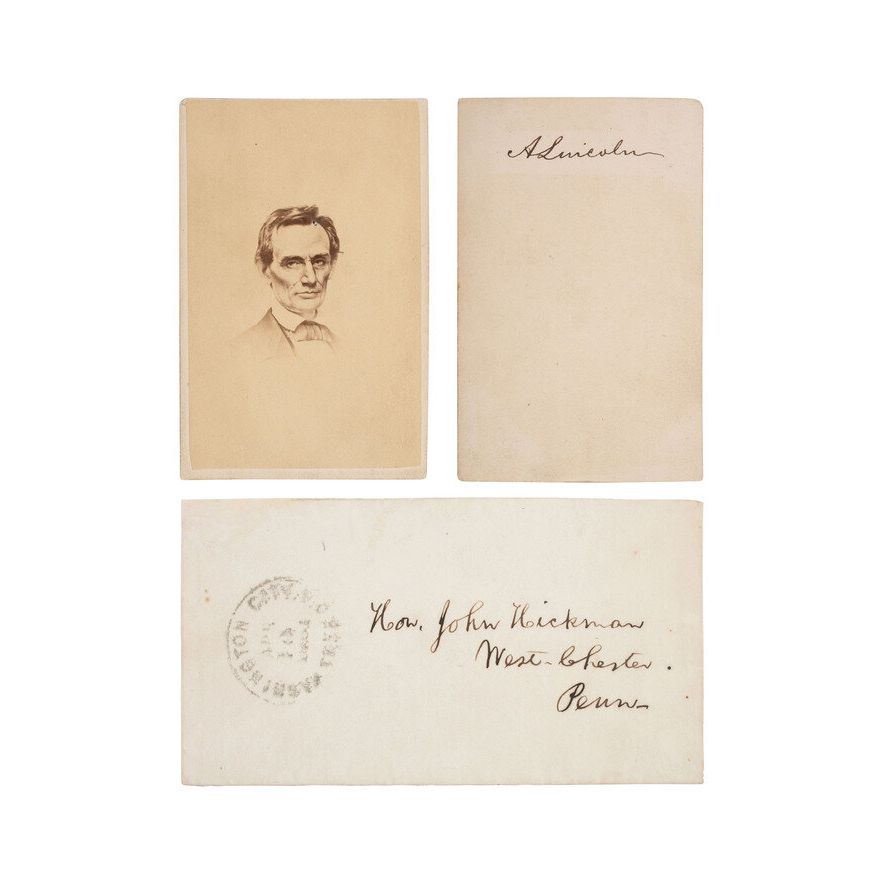 A. Lincoln
WASHINGTON CITY, D.C.
Hon. John Hickman
West-Chester.
Penn-